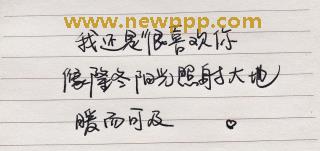 www.newppp.com
我还是很喜欢你
像隆冬阳光照射大地
暖而可及